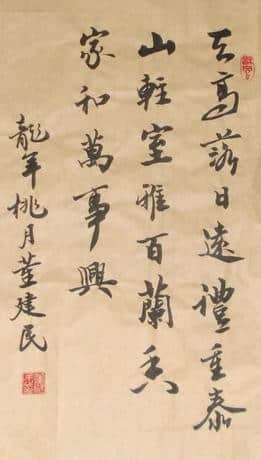 天高落日遠禮重泰
山輕室雅百蘭香
家和萬事興
龍年桃月董建民